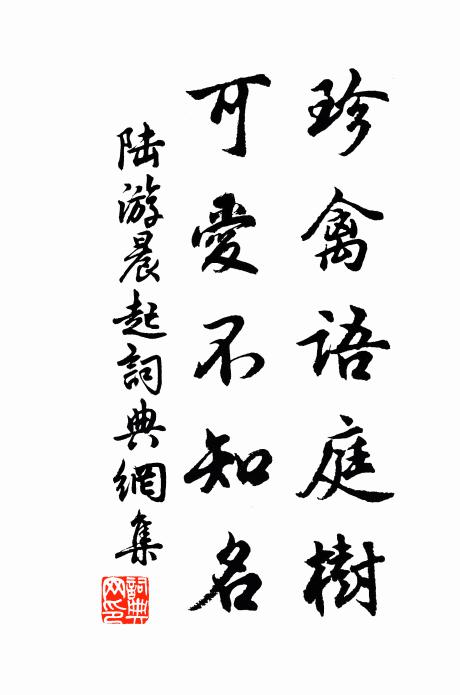 珍禽語庭樹
可愛不知名
陸游晨起詞典網集
詞典網印